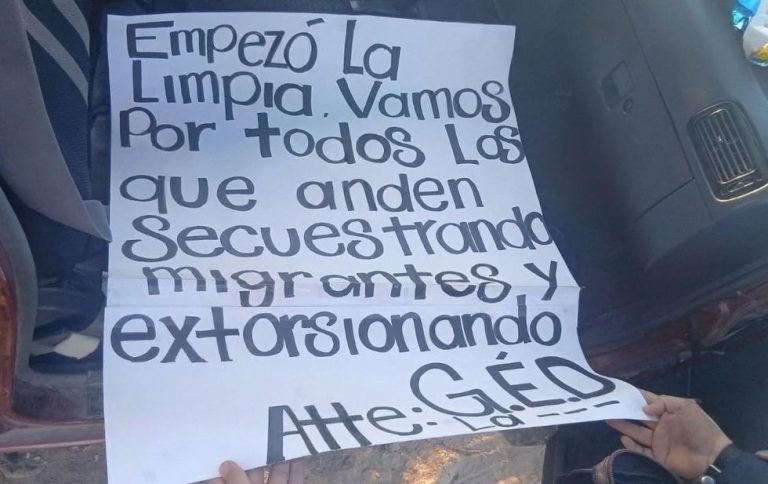 Empezó La
Limpia. Vamos
Por todos Los
que anden
Secuestrando
migrantes y
extorsionando
Atte: G.É.D
La ---